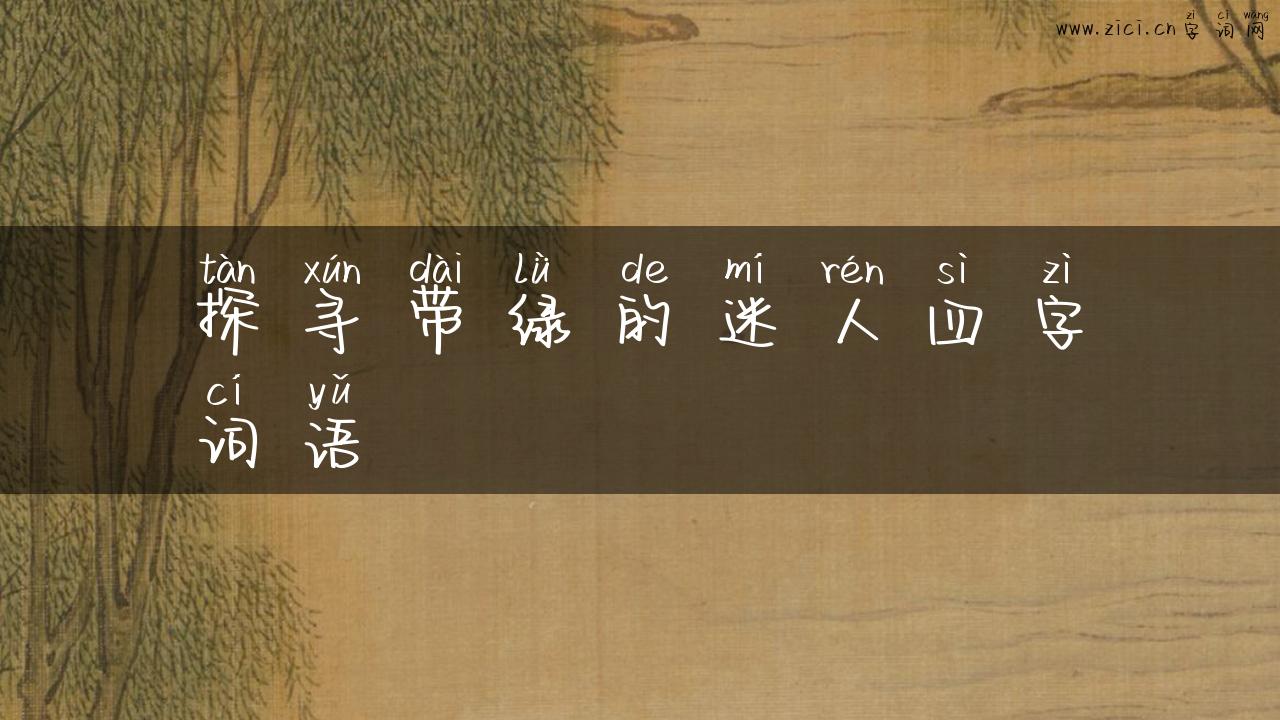 zì cí wǎng
www.zici.cn字词网
tàn xún dài lǜ de mí rén sì zì
探寻带绿的迷人四字
cí yǔ
词语